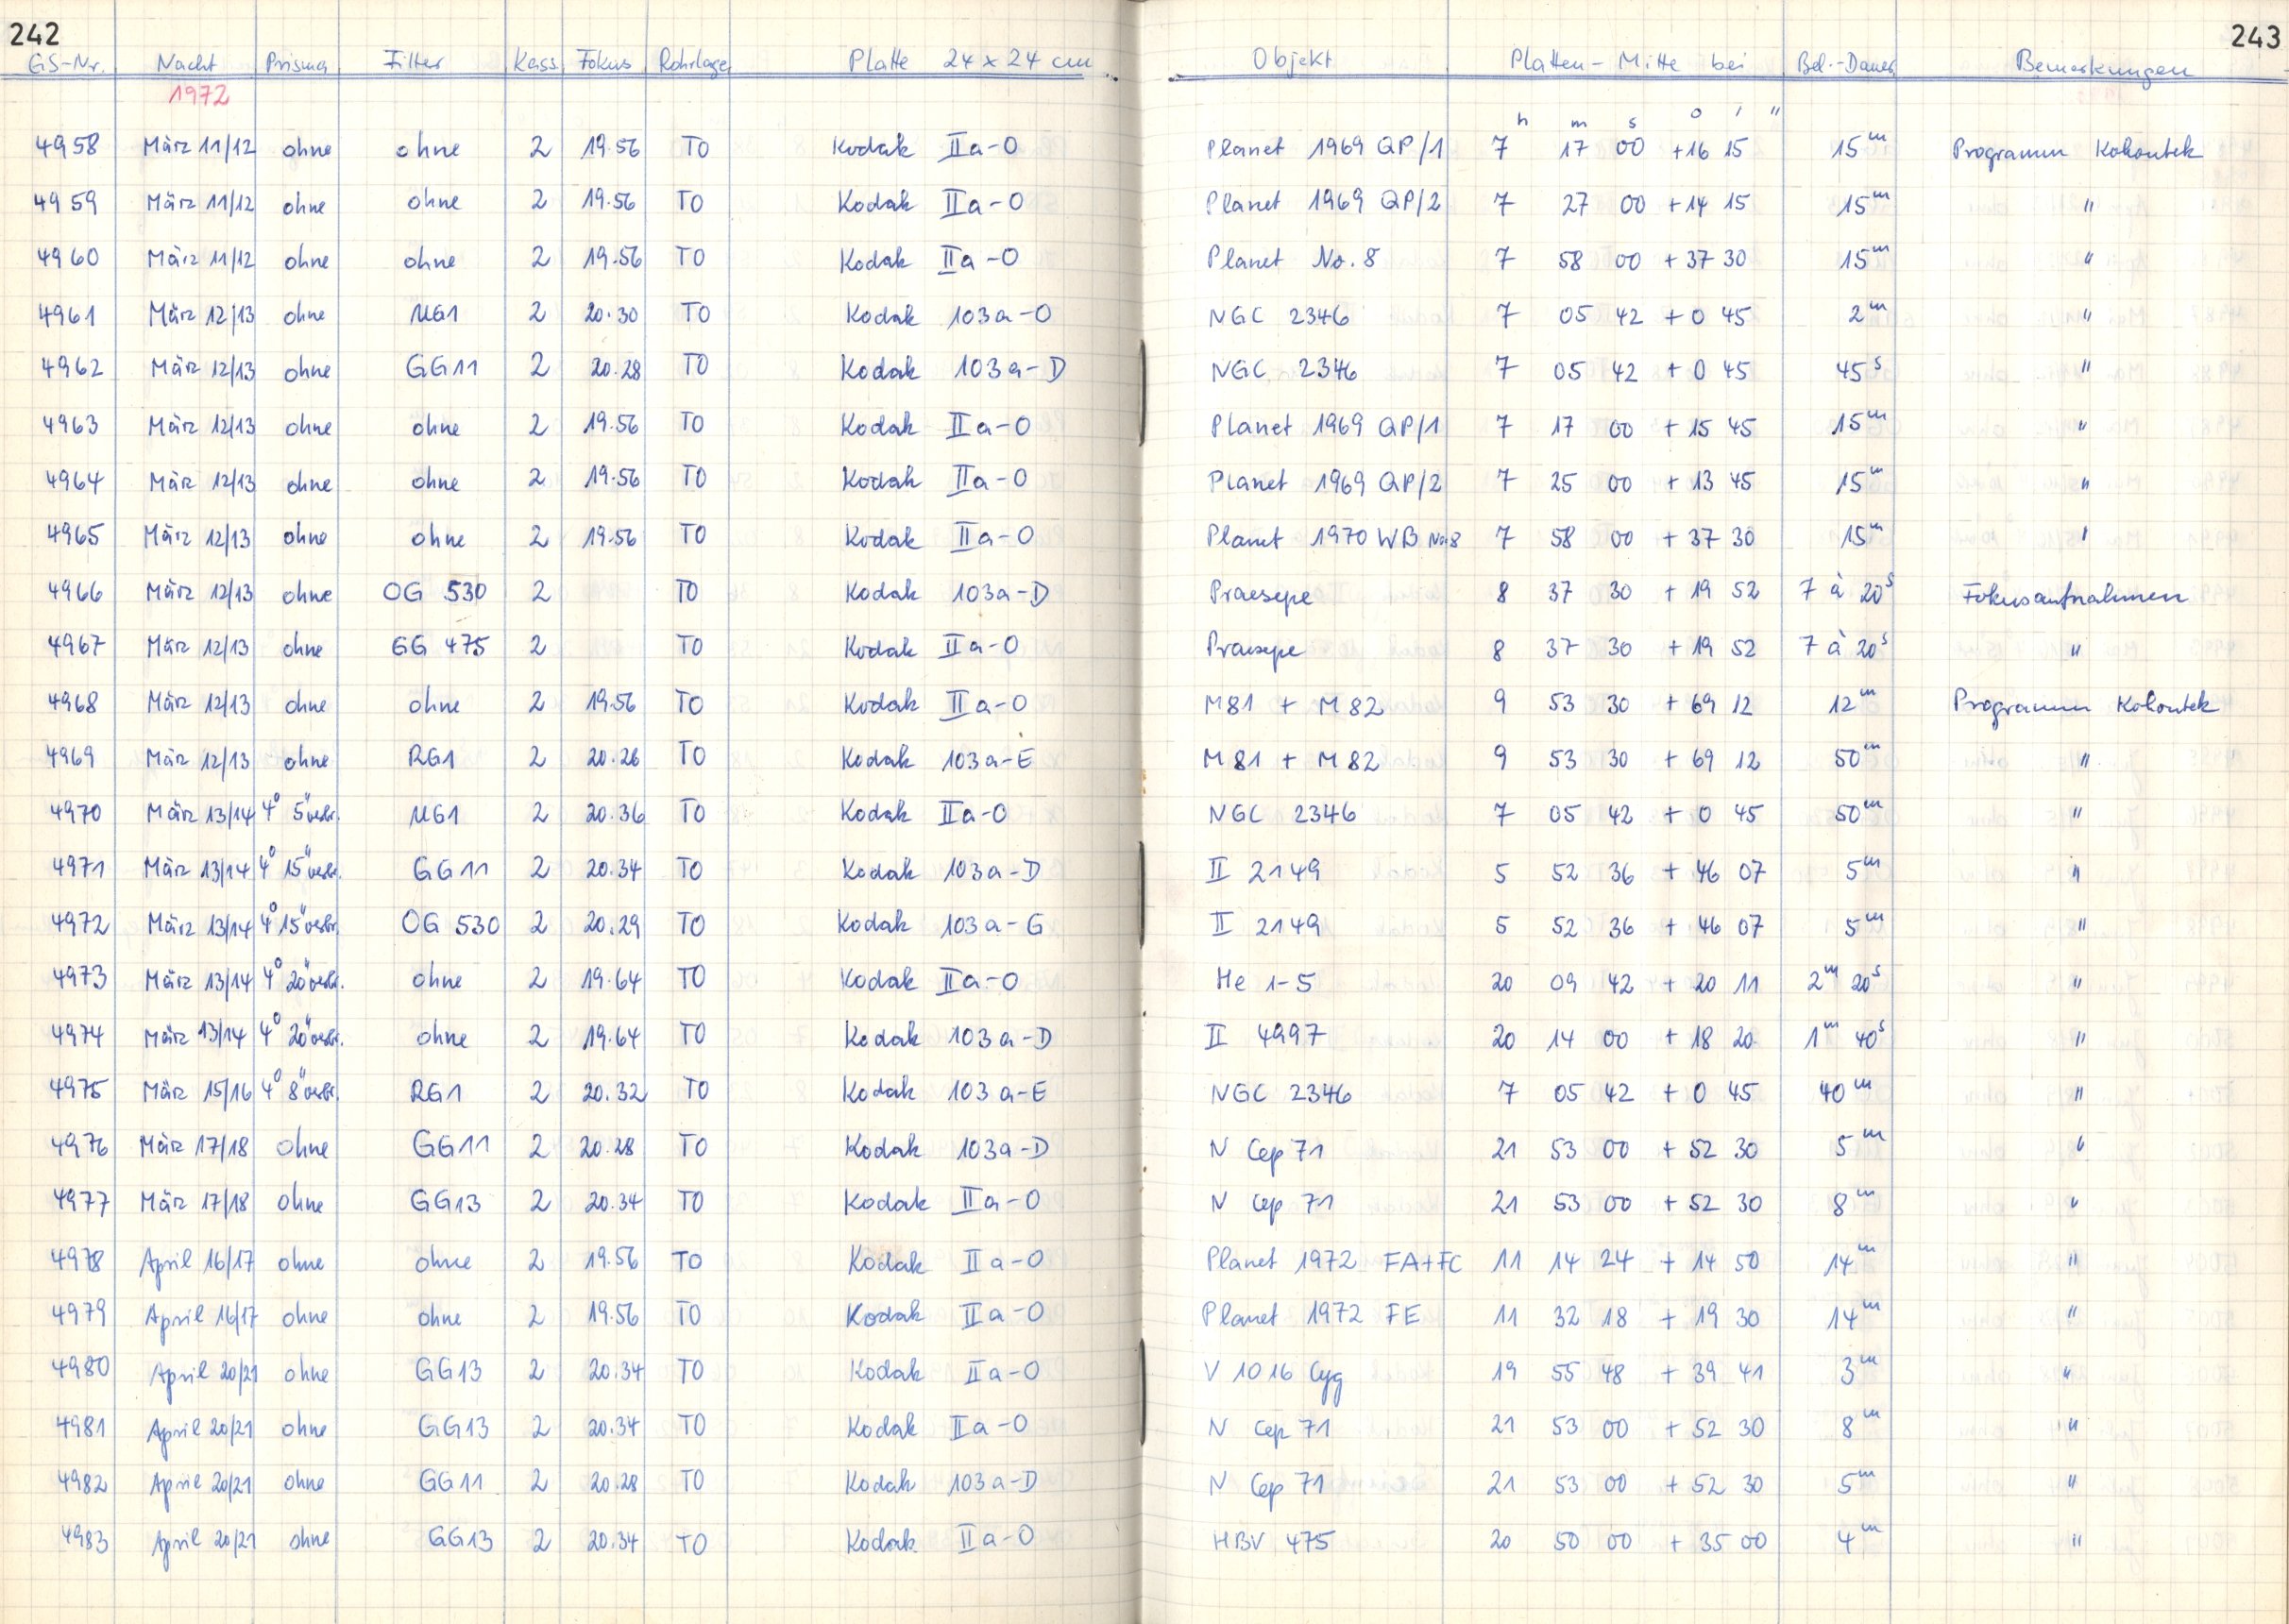 242 243
GS-Nr. Nacht Prisma Filter Kass. Fokus Rohrlage Platte 24 x 24 cm Objekt Platten-Mitte bei Bel.-Dauer Bemerkungen
1972
h m s ° ' "
4958 März 11/12 ohne ohne 2 19.56 TO Kodak IIa-O Planet 1969 QP/1 7 17 00 +16 15 15m Programm Kohoutek
4959 März 11/12 ohne ohne 2 19.56 TO Kodak IIa-O Planet 1969 QP/2 7 27 00 +14 15 15m "
4960 März 11/12 ohne ohne 2 19.56 TO Kodak IIa-O Planet No. 8 7 58 00 +37 30 15m "
4961 März 12/13 ohne UG1 2 20.30 TO Kodak 103a-O NGC 2346 7 05 42 +0 45 2m "
4962 März 12/13 ohne GG11 2 20.28 TO Kodak 103a-D NGC 2346 7 05 42 +0 45 45s "
4963 März 12/13 ohne ohne 2 19.56 TO Kodak IIa-O Planet 1969 QP/1 7 17 00 +15 45 15m "
4964 März 12/13 ohne ohne 2 19.56 TO Kodak IIa-O Planet 1969 QP/2 7 25 00 +13 45 15m "
4965 März 12/13 ohne ohne 2 19.56 TO Kodak IIa-O Planet 1970 WB No.8 7 58 00 +37 30 15m "
4966 März 12/13 ohne OG 530 2 TO Kodak 103a-D Praesepe 8 37 30 +19 52 7 à 20s Fokusaufnahmen
4967 März 12/13 ohne GG 475 2 TO Kodak IIa-O Praesepe 8 37 30 +19 52 7 à 20s "
4968 März 12/13 ohne ohne 2 19.56 TO Kodak IIa-O M81 + M82 9 53 30 +69 12 12m Programm Kohoutek
4969 März 12/13 ohne RG1 2 20.26 TO Kodak 103a-E M81 + M82 9 53 30 +69 12 50m "
4970 März 13/14 4° 5" verbr. UG1 2 20.36 TO Kodak IIa-O NGC 2346 7 05 42 +0 45 50m "
4971 März 13/14 4° 15" verbr. GG11 2 20.34 TO Kodak 103a-D II 2149 5 52 36 +46 07 5m "
4972 März 13/14 4° 15" verbr. OG 530 2 20.29 TO Kodak 103a-G II 2149 5 52 36 +46 07 5m "
4973 März 13/14 4° 20" verbr. ohne 2 19.64 TO Kodak IIa-O He 1-5 20 09 42 +20 11 2m 20s "
4974 März 13/14 4° 20" verbr. ohne 2 19.64 TO Kodak 103a-D II 4997 20 14 00 +18 20 1m 40s "
4975 März 15/16 4° 8" verbr. RG1 2 20.32 TO Kodak 103a-E NGC 2346 7 05 42 +0 45 40m "
4976 März 17/18 ohne GG11 2 20.28 TO Kodak 103a-D N Cep 71 21 53 00 +52 30 5m "
4977 März 17/18 ohne GG13 2 20.34 TO Kodak IIa-O N Cep 71 21 53 00 +52 30 8m "
4978 April 16/17 ohne ohne 2 19.56 TO Kodak IIa-O Planet 1972 FA+FC 11 14 24 +14 50 14m "
4979 April 16/17 ohne ohne 2 19.56 TO Kodak IIa-O Planet 1972 FE 11 32 18 +19 30 14m "
4980 April 20/21 ohne GG13 2 20.34 TO Kodak IIa-O V 1016 Cyg 19 55 48 +39 41 3m "
4981 April 20/21 ohne GG13 2 20.34 TO Kodak IIa-O N Cep 71 21 53 00 +52 30 8m "
4982 April 20/21 ohne GG11 2 20.28 TO Kodak 103a-D N Cep 71 21 53 00 +52 30 5m "
4983 April 20/21 ohne GG13 2 20.34 TO Kodak IIa-O HBV 475 20 50 00 +35 00 4m "